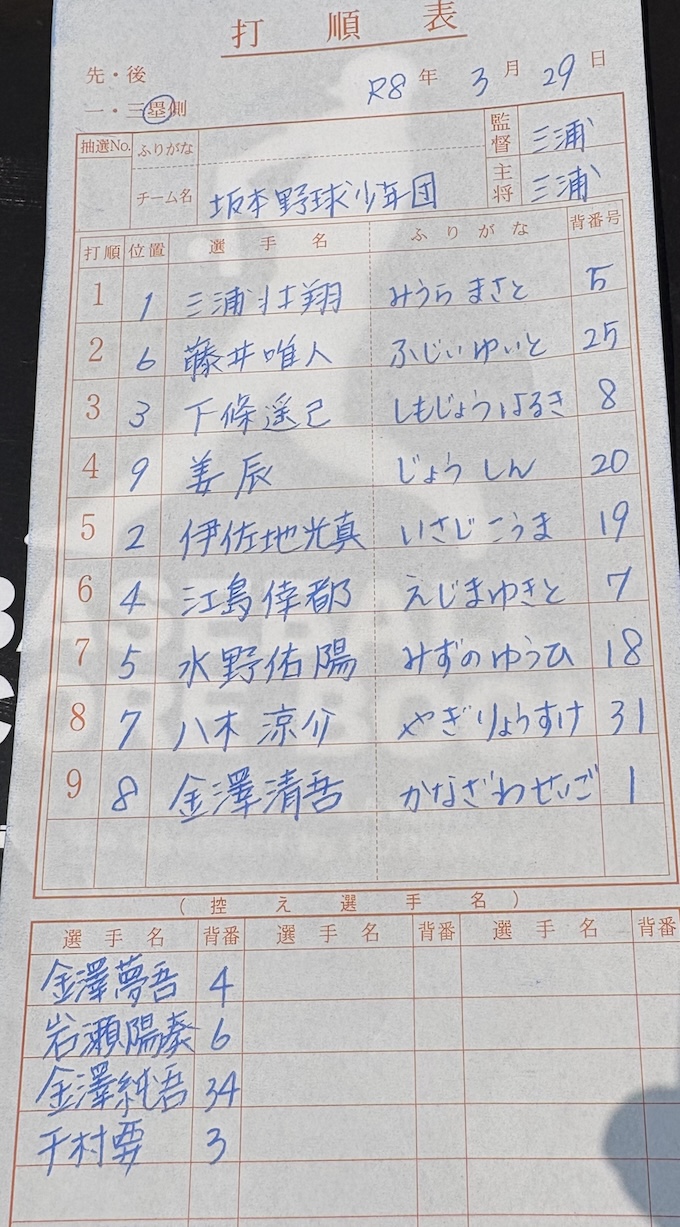 打順表
先・後
R8年 3月 29日
一・三塁側
抽選No. ふりがな 監督 三浦
チーム名 坂本野球少年団 主将 三浦
打順 位置 選手名 ふりがな 背番号
1 1 三浦壮翔 みうら まさと 5
2 6 藤井唯人 ふじいゆいと 25
3 3 下條遥己 しもじょうはるき 8
4 9 姜辰 じょう しん 20
5 2 伊佐地光真 いさじこうま 19
6 4 江島倖都 えじまゆきと 7
7 5 水野佑陽 みずのゆうひ 18
8 7 八木涼介 やぎりょうすけ 31
9 8 金澤清吾 かなざわせいご 1
(控え選手名)
選手名 背番 選手名 背番 選手名 背番
金澤夢吾 4
岩瀬陽奏 6
金澤純吾 34
干村要 3
BASEBALL